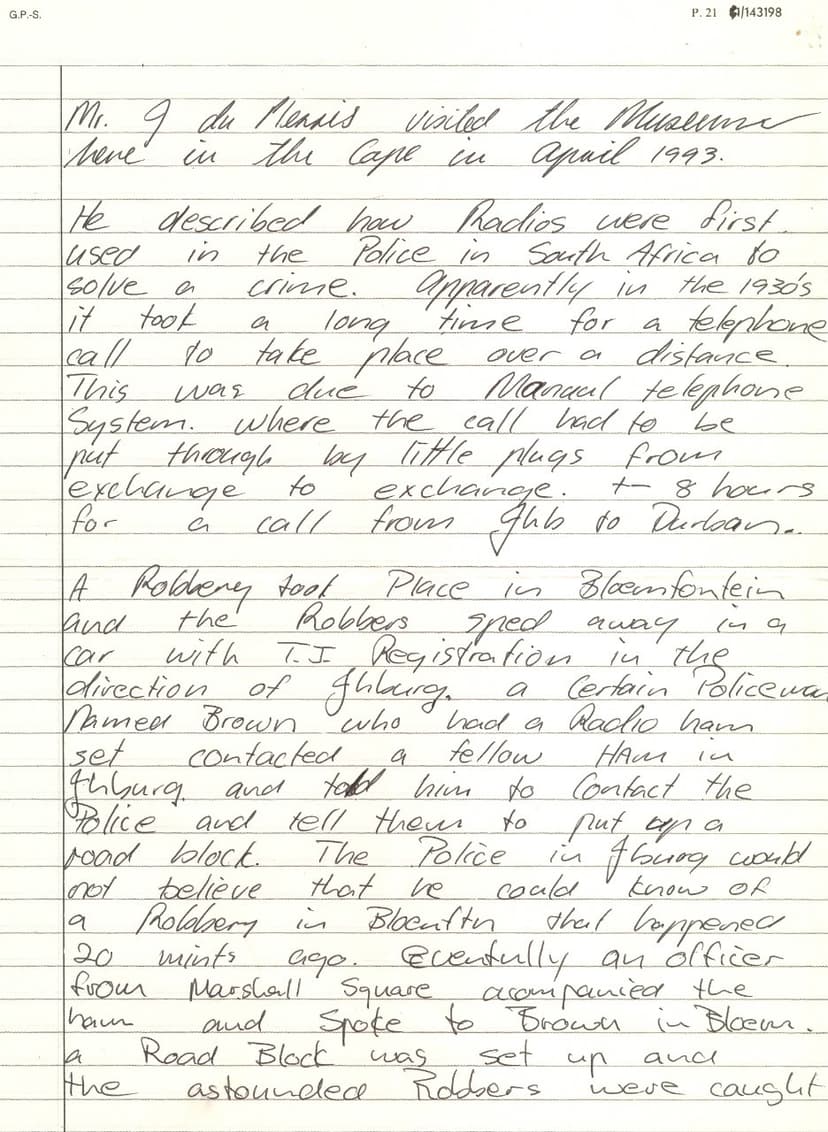 G.P.-S.
P. 21 /143198
Mr. J du Plessis visited the Museum
here in the Cape in April 1993.
He described how Radios were first
used in the Police in South Africa to
solve a crime. Apparently in the 1930's
it took a long time for a telephone
call to take place over a distance.
This was due to Manaul telephone
System. where the call had to be
put through by little plugs from
exchange to exchange. +- 8 hours
for a call from Jhb to Durban..
A Robbery took Place in Bloemfontein
and the Robbers sped away in a
car with T.J Registration in the
direction of Jhburg. a Certain Policeman
Named Brown who had a Radio ham
set contacted a fellow HAm in
Jhburg and told him to Contact the
Police and tell them to put up a
road block. The Police in Jburg would
not believe that he could know of
a Robbery in Bloemftn that happened
20 mints ago. Eventully an officer
from Marshall Square acompanied the
ham and Spoke to Brown in Bloem.
a Road Block was set up and
the astounded Robbers were caught